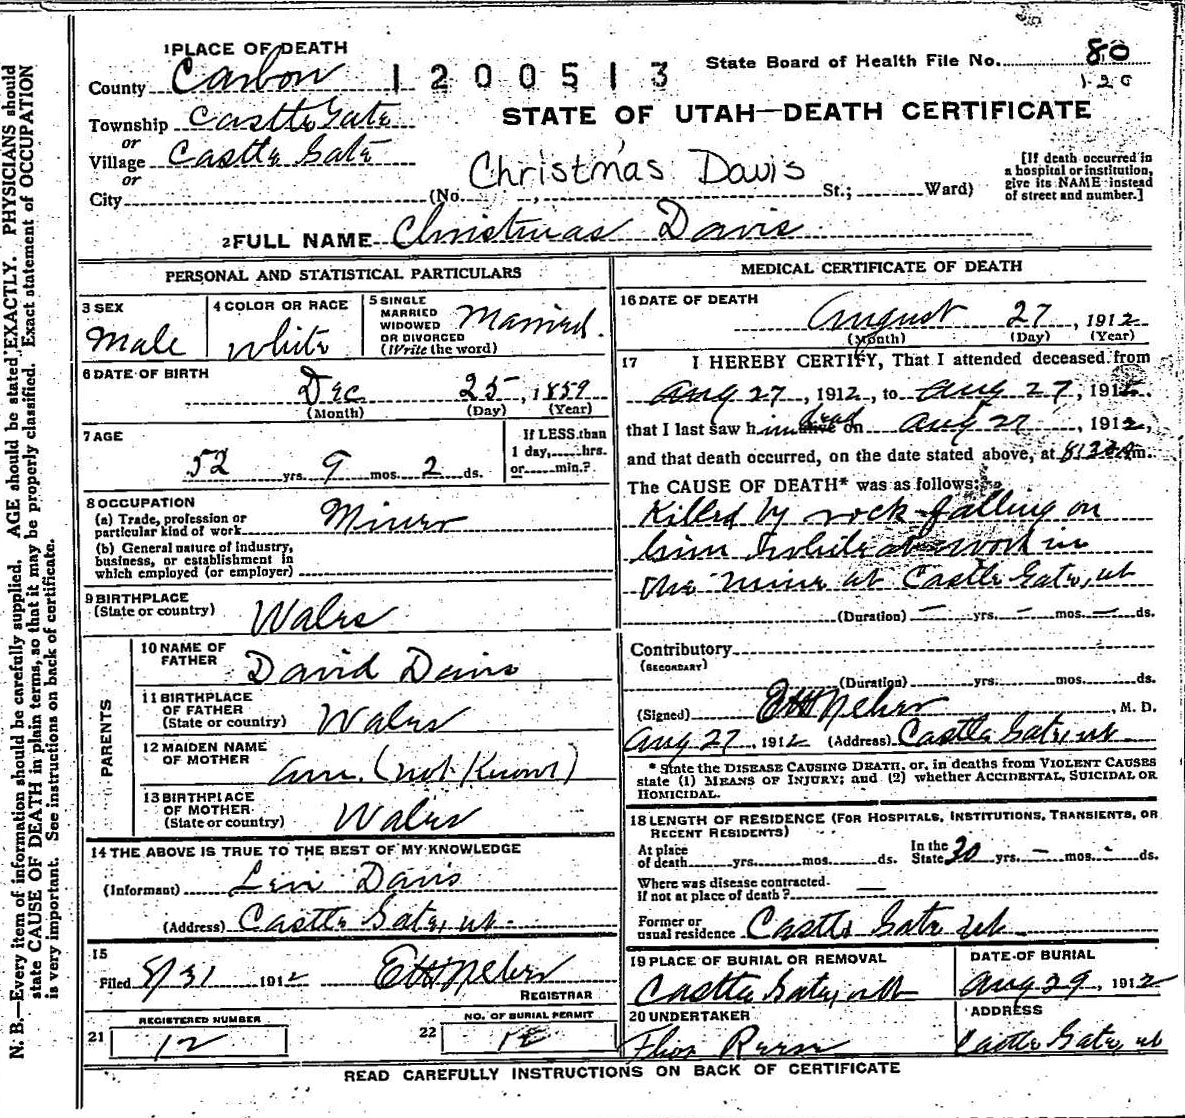 1 PLACE OF DEATH
County Carbon
1200513
State Board of Health File No. 80
120
Township Castle Gate
or
Village Castle Gate
or
City
STATE OF UTAH—DEATH CERTIFICATE
Christmas Davis
(No. , St.; Ward)
[If death occurred in
a hospital or institution,
give its NAME instead
of street and number.]
2 FULL NAME Christmas Davis
PERSONAL AND STATISTICAL PARTICULARS
3 SEX
Male
4 COLOR OR RACE
White
5 SINGLE
MARRIED
WIDOWED
OR DIVORCED
(Write the word)
Married.
6 DATE OF BIRTH
Dec 25, 1859
(Month) (Day) (Year)
7 AGE
52 yrs. 9 mos. 2 ds.
If LESS than
1 day, hrs.
or min.?
8 OCCUPATION
(a) Trade, profession or
particular kind of work
Miner
(b) General nature of industry,
business, or establishment in
which employed (or employer)
9 BIRTHPLACE
(State or country)
Wales
PARENTS
10 NAME OF
FATHER
David Davis
11 BIRTHPLACE
OF FATHER
(State or country)
Wales
12 MAIDEN NAME
OF MOTHER
Ann. (not Known)
13 BIRTHPLACE
OF MOTHER
(State or country)
Wales
14 THE ABOVE IS TRUE TO THE BEST OF MY KNOWLEDGE
(Informant) Levi Davis
(Address) Castle Gate, ut.
15
Filed 8/31 1912
REGISTRAR
21
REGISTERED NUMBER
12
22
NO. OF BURIAL PERMIT
MEDICAL CERTIFICATE OF DEATH
16 DATE OF DEATH
August 27, 1912
(Month) (Day) (Year)
17 I HEREBY CERTIFY, That I attended deceased from
Aug 27, 1912, to Aug 27, 1912.
that I last saw him dead alive on Aug 27, 1912,
and that death occurred, on the date stated above, at 8:30 A m.
The CAUSE OF DEATH* was as follows:
Killed by rock falling on
him while at work in
the mine at Castle Gate, ut
(Duration) — yrs. — mos. — ds.
Contributory
(SECONDARY)
(Duration) yrs. mos. ds.
(Signed) , M. D.
Aug 27, 1912 (Address) Castle Gate, ut
* State the DISEASE CAUSING DEATH, or, in deaths from VIOLENT CAUSES
state (1) MEANS OF INJURY; and (2) whether ACCIDENTAL, SUICIDAL OR
HOMICIDAL.
18 LENGTH OF RESIDENCE (FOR HOSPITALS, INSTITUTIONS, TRANSIENTS, OR
RECENT RESIDENTS)
At place
of death yrs. mos. ds.
In the
State 30 yrs. - mos. - ds.
Where was disease contracted.
if not at place of death? —
Former or
usual residence Castle Gate Ut.
19 PLACE OF BURIAL OR REMOVAL
Castle Gate, ut
DATE OF BURIAL
Aug 29, 1912
20 UNDERTAKER
ADDRESS
Castle Gate, ut
READ CAREFULLY INSTRUCTIONS ON BACK OF CERTIFICATE
N. B.—Every item of information should be carefully supplied. AGE should be stated EXACTLY. PHYSICIANS should
state CAUSE OF DEATH in plain terms, so that it may be properly classified. Exact statement of OCCUPATION
is very important. See instructions on back of certificate.